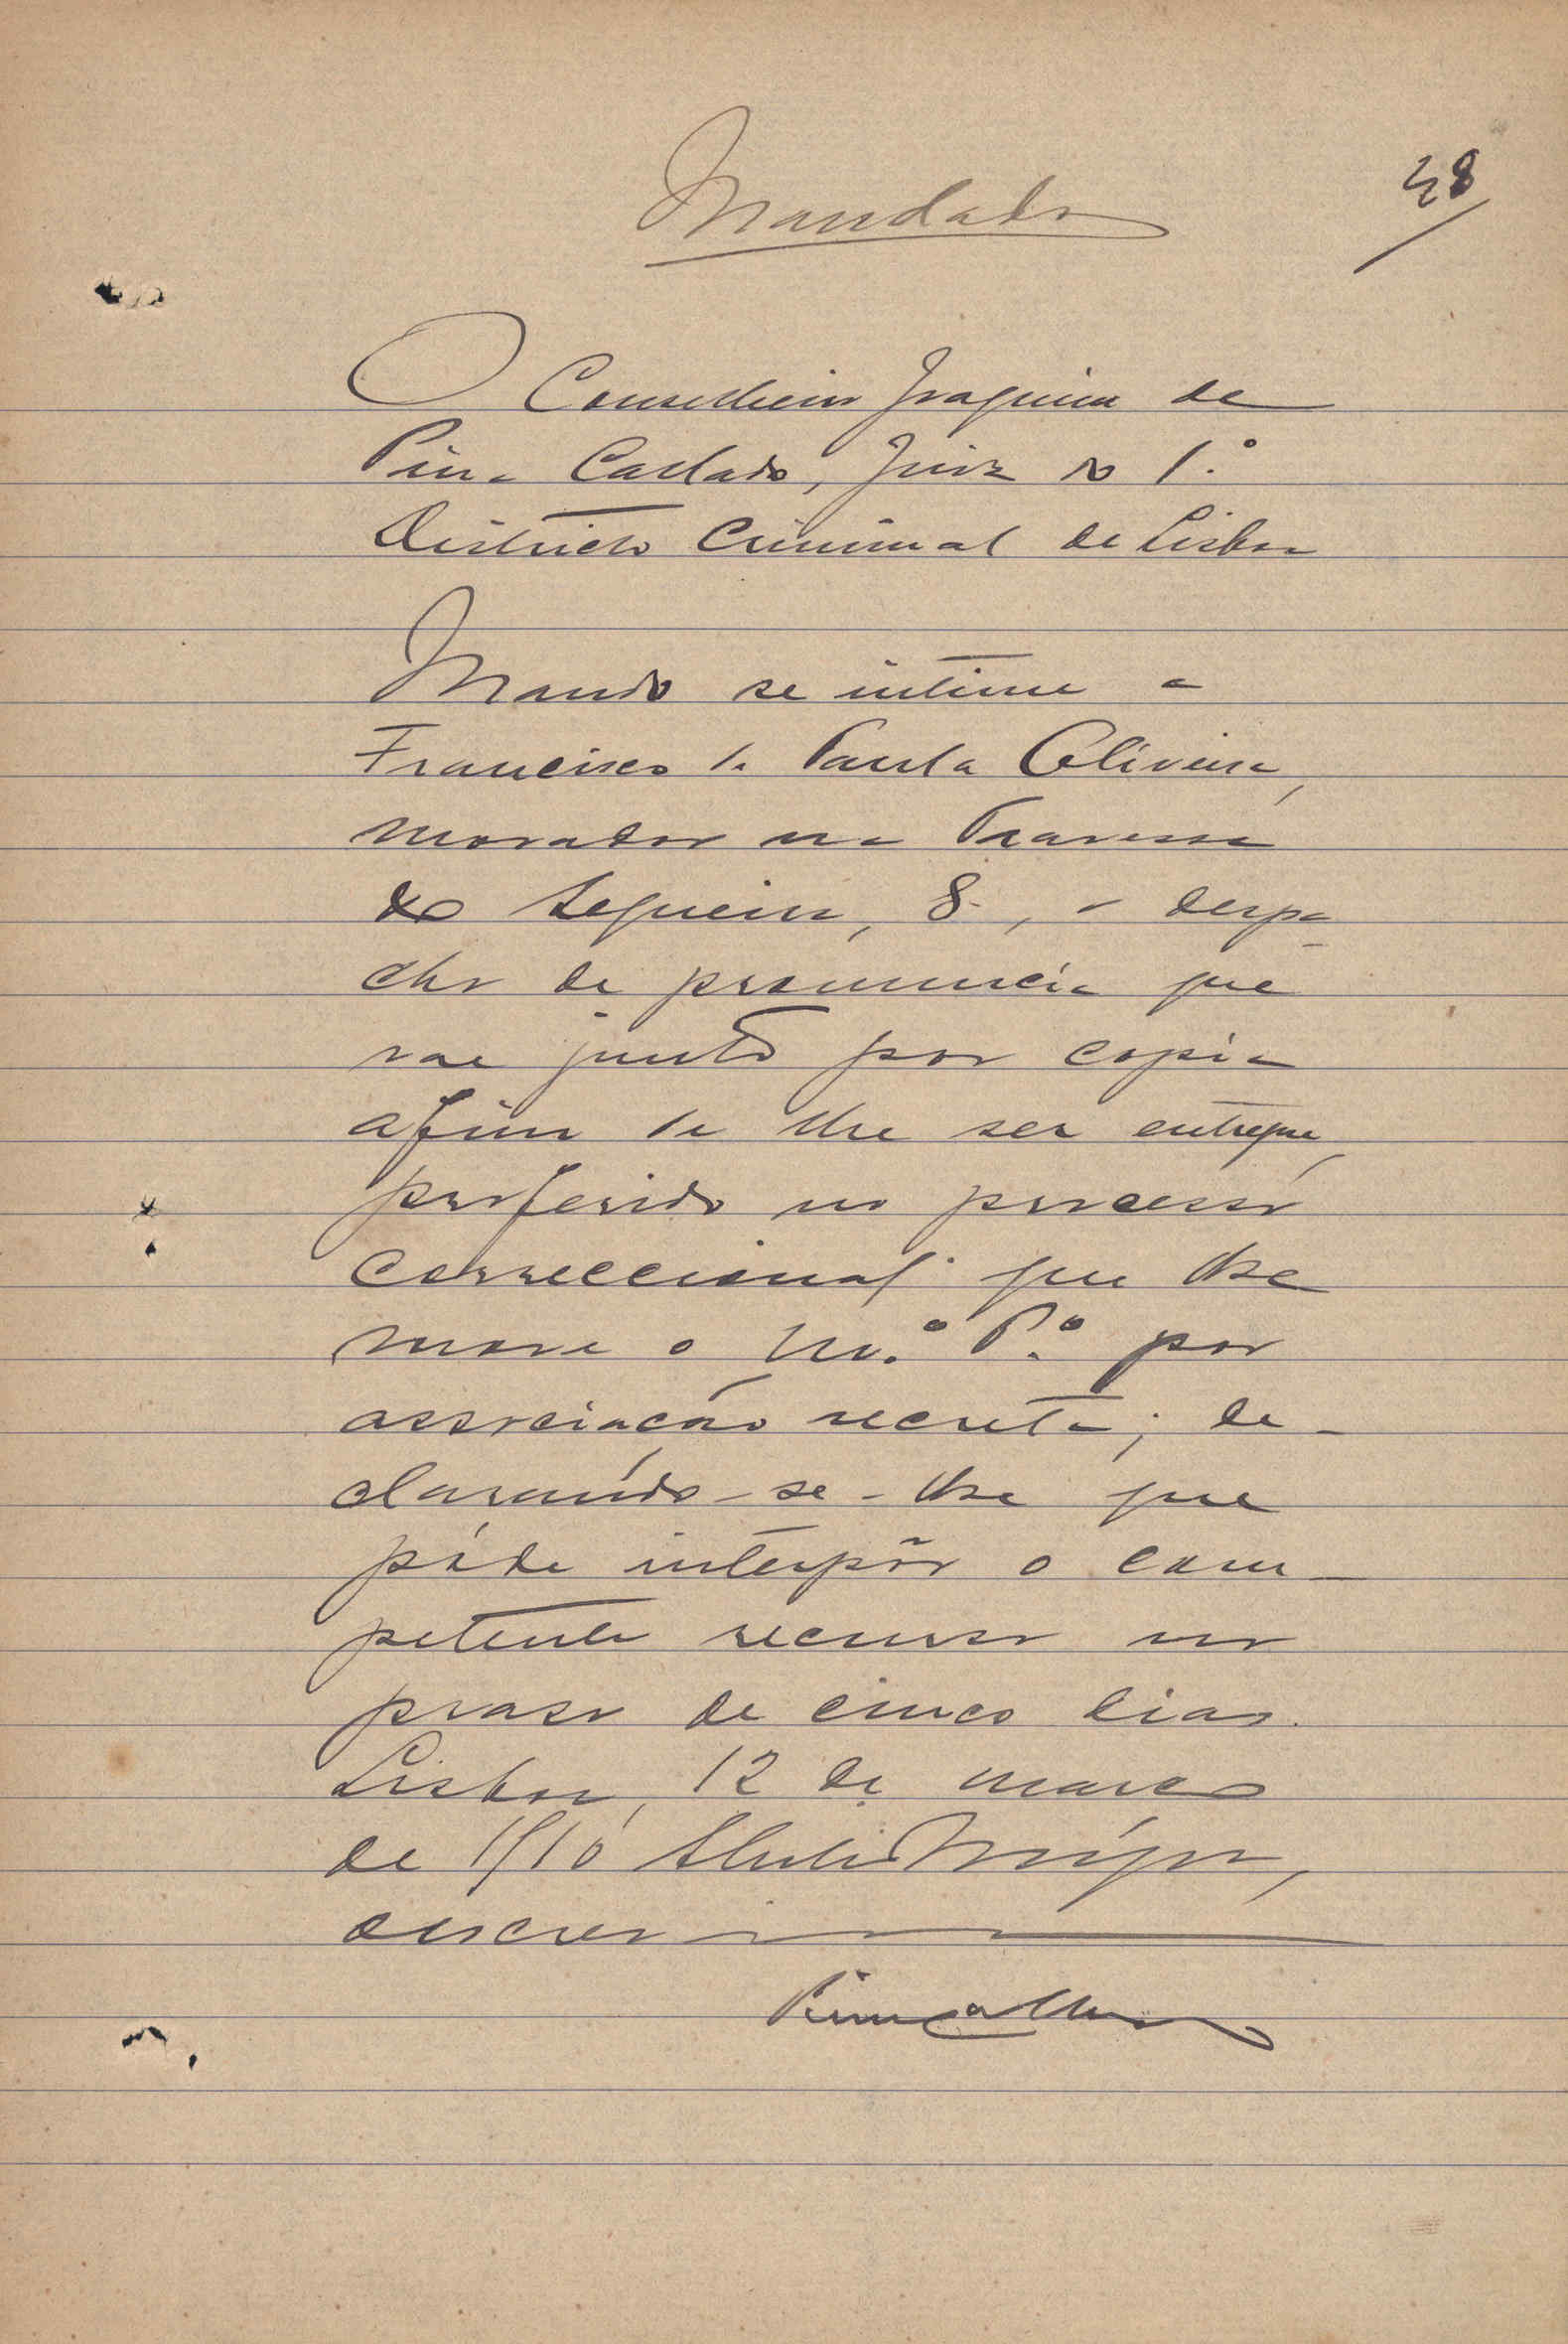 48
Mandado
O Conselheiro Joaquim de
Pina Callado, Juiz do 1.º
Districto Criminal de Lisboa
Mando se intime a
Francisco de Paula Oliveira,
morador na Travessa
do Sequeiro, 8, o despa
cho de pronuncia que
vae junto por copia
afim de lhe ser entregue,
proferido no processo
correccional que lhe
move o M.º P.º por
associação secreta; de-
clarando-se-lhe que
póde interpôr o com-
petente recurso no
praso de cinco dias.
Lisboa, 12 de março
de 1910
o escrevi
Pina Callado